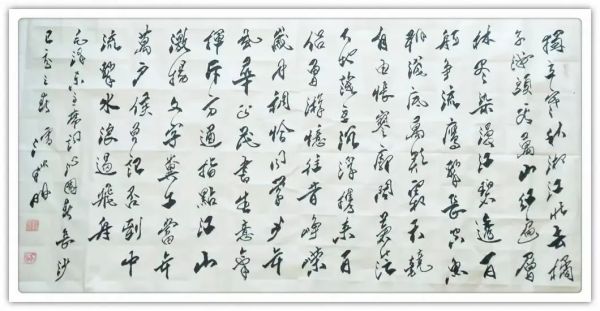 獨立寒秋湘江北去橘
子洲頭看萬山紅遍層
林盡染漫江碧透百
舸爭流鷹擊長空魚
翔淺底萬類霜天競
自由悵寥廓問蒼茫
大地誰主沉浮攜來百
侶曾游憶往昔崢嶸
歲月稠恰同學少年
風華正茂書生意氣
揮斥方遒指點江山
激揚文字糞土當年
萬户侯曾記否到中
流擊水浪遏飛舟
毛澤東主席詞沁園春長沙
己亥之春